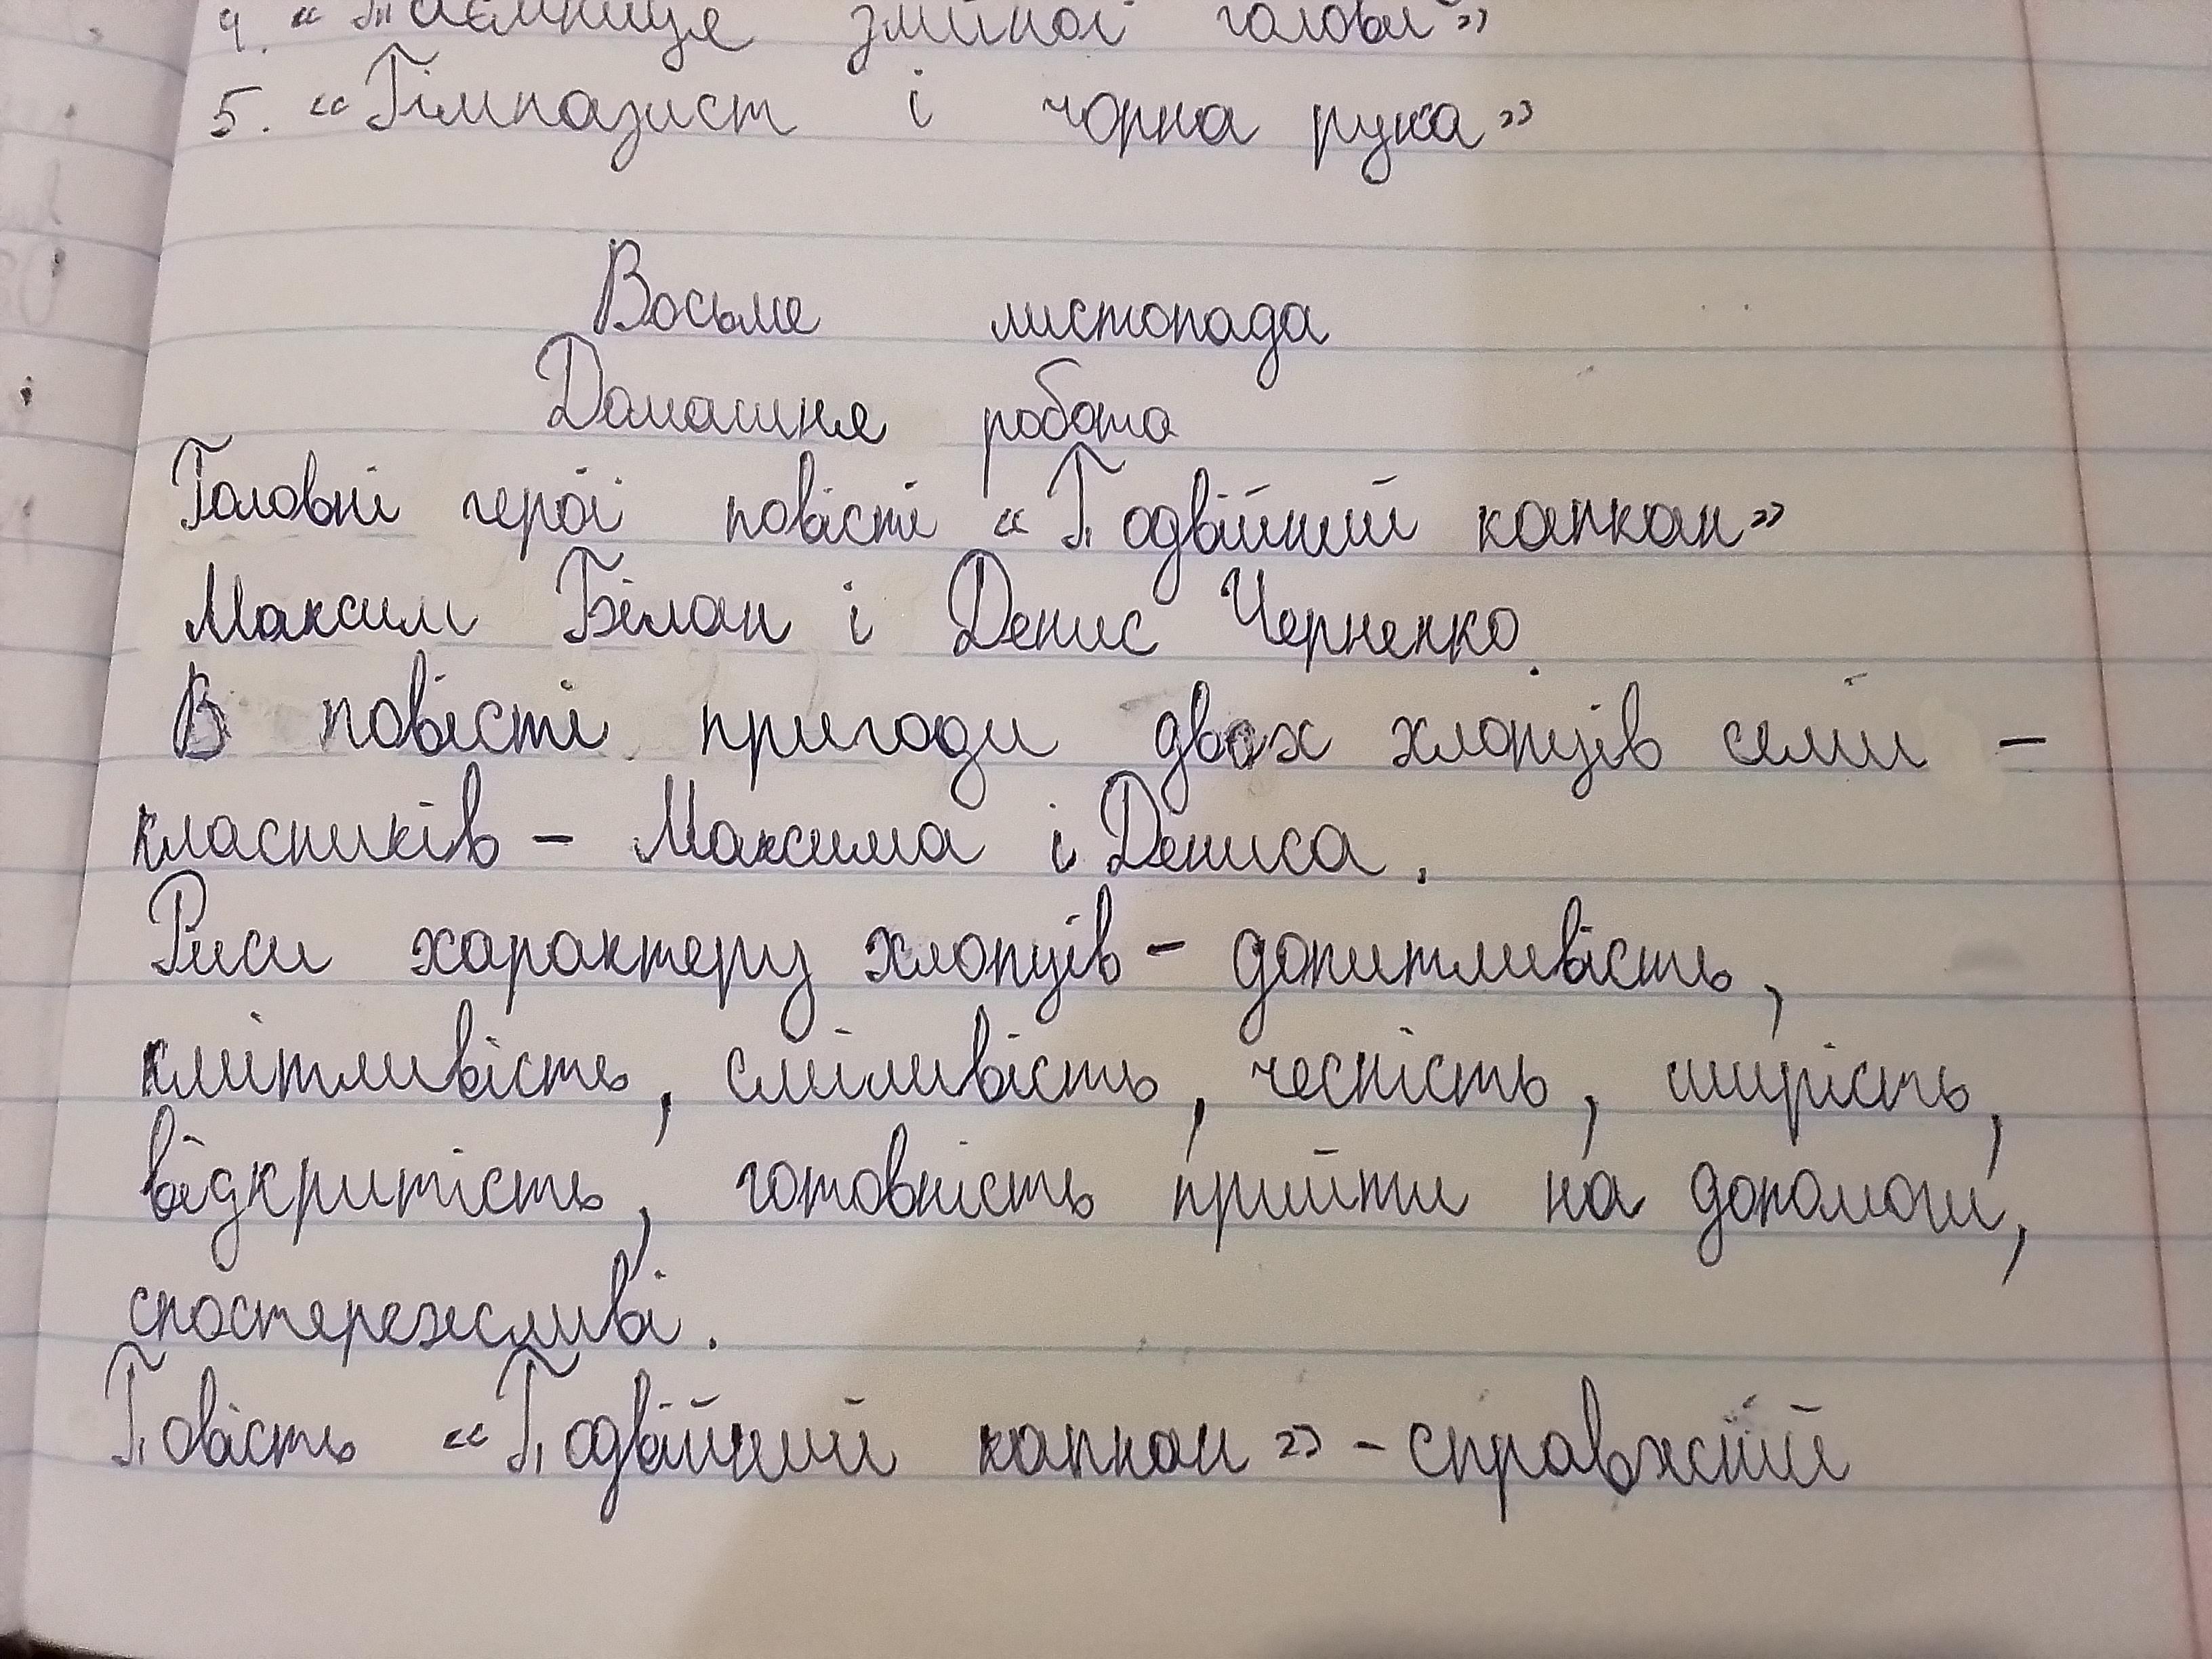 4. «Таємниця зміїної голови»
5. «Гімназист і чорна рука»
Восьме листопада
Домашня робота
Головні герої повісті «Подвійний капкан»
Максим Білан і Денис Черненко.
В повісті пригоди двох хлопців семи -
класників - Максима і Дениса.
Риси характеру хлопців - допитливість,
кмітливість, сміливість, чесність, щирість,
відкритість, готовність прийти на допомогу,
спостережливі.
Повість «Подвійний капкан» - справжній